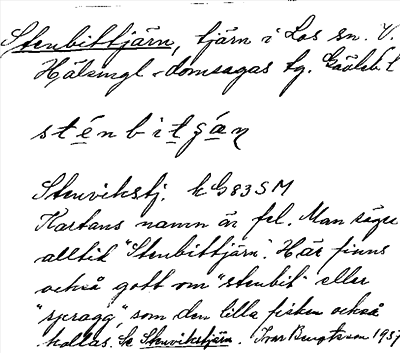 Stenbittjärn, tjärn i Los sn. V.
Hälsingl-domsagas tg. Gävleb. l
sténbitʂäɳ
Stenvikstj. k G83SM
Kartans namn är fel. Man säger
alltid "Stenbittjärn". Här finns
också gott om "stenbit" eller
"spragg" som den lilla fisken också
kallas. k Stenvikstjärn. Ivar Bengtsson 1937